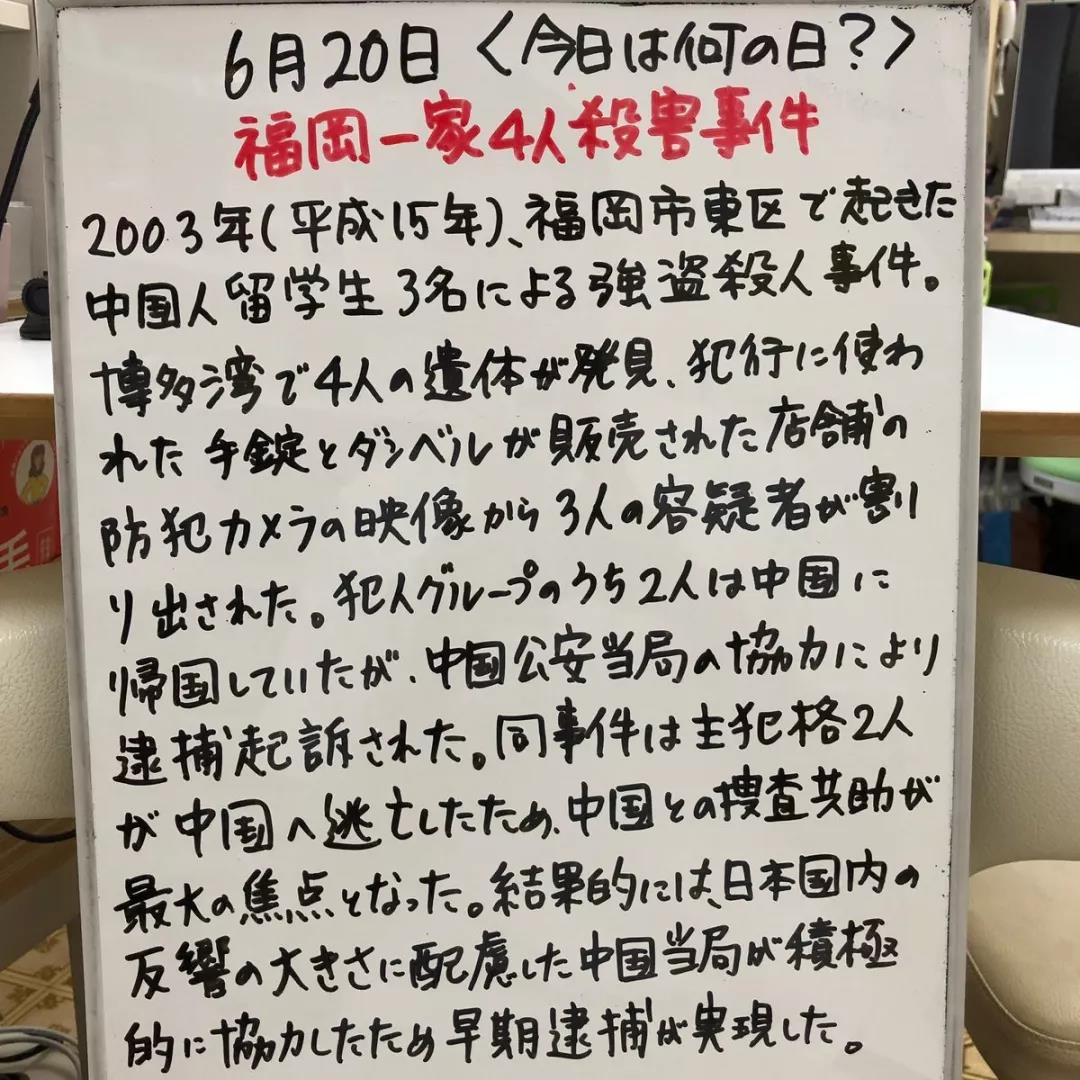 6月20日〈今日は何の日？〉
福岡一家4人殺害事件
2003年(平成15年)、福岡市東区で起きた
中国人留学生3名による強盗殺人事件。
博多湾で4人の遺体が発見、犯行に使わ
れた手錠とダンベルが販売された店舗の
防犯カメラの映像から3人の容疑者が割り
り出された。犯人グループのうち2人は中国に
帰国していたが、中国公安当局の協力により
逮捕起訴された。同事件は主犯格2人
が中国へ逃亡したため、中国との捜査共助が
最大の焦点となった。結果的には、日本国内の
反響の大きさに配慮した中国当局が積極
的に協力したため早期逮捕が実現した。